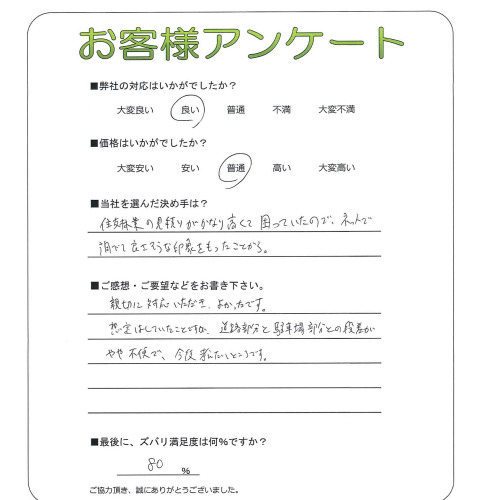 お客様アンケート
■弊社の対応はいかがでしたか？
大変良い 良い 普通 不満 大変不満
■価格はいかがでしたか？
大変安い 安い 普通 高い 大変高い
■当社を選んだ決め手は？
の見積りがかなり高くて困っていたので、ネットで
調べて良さそうな印象をもったことから。
■ご感想・ご要望などをお書き下さい。
親切に対応いただき、よかったです。
想定はしていたことですが、道路部分と駐車場部分との段差が
やや不便で、今後 たいところです。
■最後に、ズバリ満足度は何%ですか？
80 %
ご協力頂き、誠にありがとうございました。